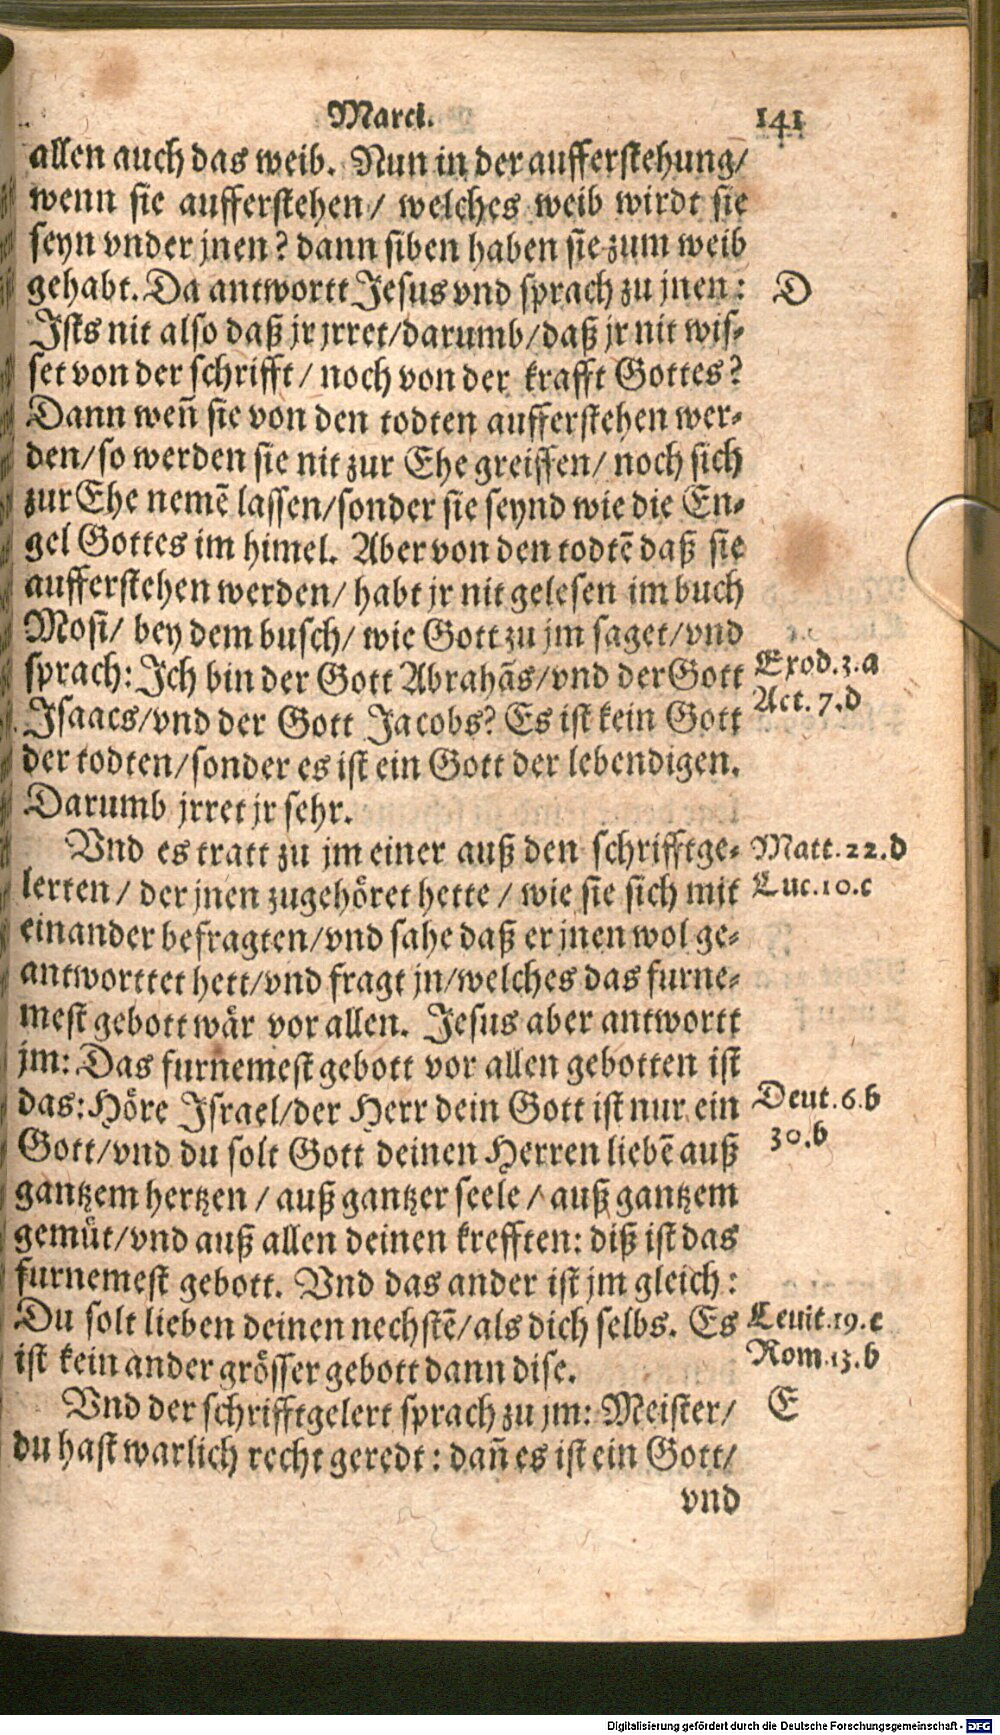 Marci. 141
allen auch das weib. Nun in der aufferstehung/
wenn sie aufferstehen/ welches weib wirdt sie
seyn vnder jnen? dann siben haben sie zum weib
gehabt. Da antwortt Jesus vnd sprach zu jnen: D
Ists nit also daß jr jrret/darumb/daß jr nit wis-
set von der schrifft/ noch von der krafft Gottes?
Dann weñ sie von den todten aufferstehen wer-
den/so werden sie nit zur Ehe greiffen/ noch sich
zur Ehe nemẽ lassen/sonder sie seynd wie die En-
gel Gottes im himel. Aber von den todtẽ daß sie
aufferstehen werden/ habt jr nit gelesen im buch
Mosi/ bey dem busch/ wie Gott zu jm saget/vnd
sprach: Ich bin der Gott Abrahãs/vnd der Gott Exod.3.a
Isaacs/vnd der Gott Jacobs? Es ist kein Gott Act. 7.d
der todten/sonder es ist ein Gott der lebendigen.
Darumb jrret jr sehr.
Vnd es tratt zu jm einer auß den schrifftge- Matt.22.d
lerten/ der jnen zugehöret hette/ wie sie sich mit Luc.10.c
einander befragten/vnd sahe daß er jnen wol ge-
antworttet hett/vnd fragt jn/welches das furne-
mest gebott wär vor allen. Jesus aber antwortt
jm: Das furnemest gebott vor allen gebotten ist
das: Höre Israel/der Herr dein Gott ist nur ein Deut.6.b
Gott/vnd du solt Gott deinen Herren liebẽ auß 30.b
gantzem hertzen/ auß gantzer seele/ auß gantzem
gemüt/vnd auß allen deinen krefften: diß ist das
furnemest gebott. Vnd das ander ist jm gleich:
Du solt lieben deinen nechstẽ/als dich selbs. Es Leuit.19.c
ist kein ander grösser gebott dann dise. Rom.13.b
Vnd der schrifftgelert sprach zu jm: Meister/ E
du hast warlich recht geredt: dañ es ist ein Gott/
vnd
Digitalisierung gefördert durch die Deutsche Forschungsgemeinschaft - DFG